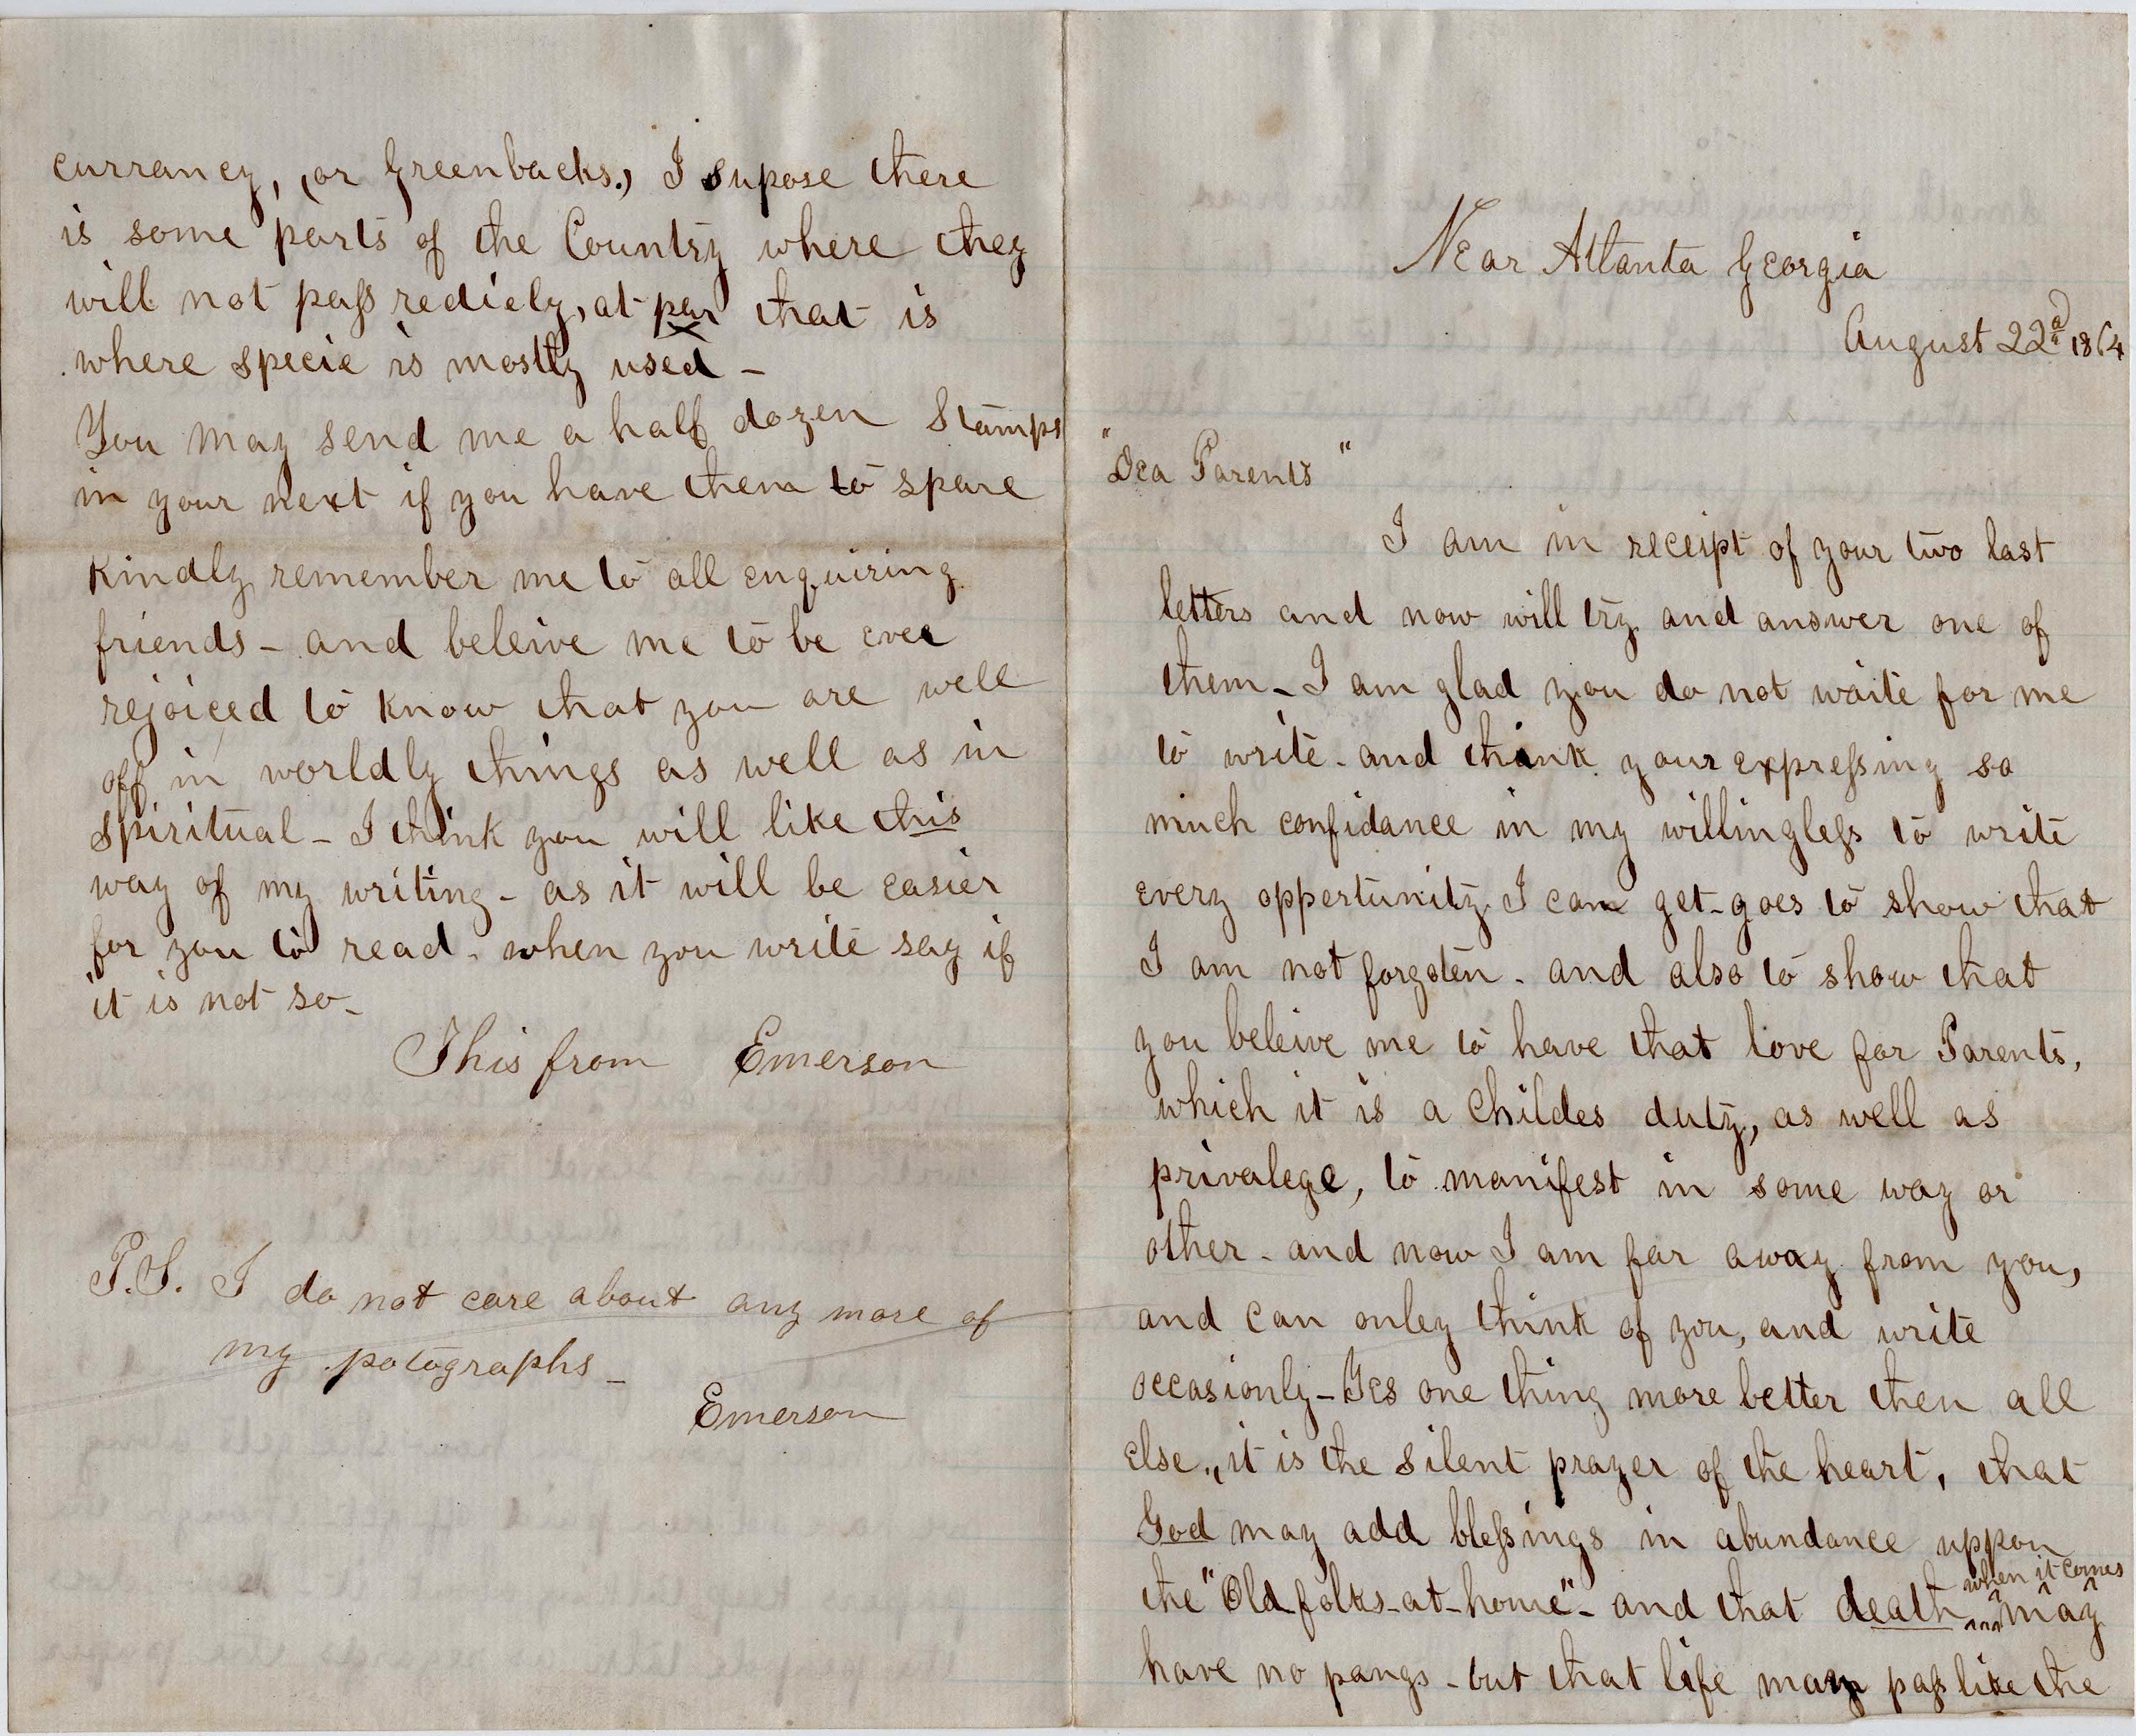 currancy, (or Greenbacks.) I supose there
is some parts of the Country where they
will not pass rediely, at par that is
where specie is mostly used -
You may send me a half dozen Stamps
in your next if you have them to spare
Kindly remember me to all enquiring
friends - and beleive me to be ever
rejoiced to know that you are well
off in worldly things as well as in
spiritual - I think you will like this
way of my writing - as it will be easier
for you to read. when you write say if
it is not so -
This from Emerson
P.S. I do not care about any more of
my potographs -
Emerson
Near Atlanta Georgia
August 22d 1864
"Dea Parents"
I am in receipt of your two last
letters and now will try and answer one of
them - I am glad you do not waite for me
to write - and think your expressing so
much confidance in my willingless to write
every oppertunity I can get - goes to show that
I am not forgoten - and also to show that
you beleive me to have that love for Parents,
which it is a Childes duty, as well as
privalege, to manifest in some way or
other - and now I am far away from you,
and can onley think of you, and write
occasionly - Yes one thing more better then all
else., it is the silent prayer of the heart, that
God may add blessings in abundance uppon
the "Old folks - at - home" - and that death when it comes may
have no pangs - but that life may pass like the